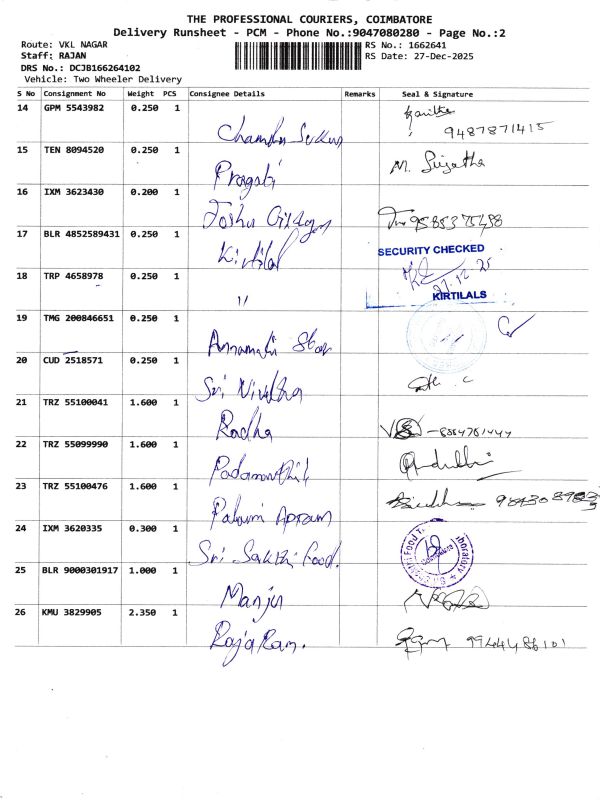 THE PROFESSIONAL COURIERS, COIMBATORE
Delivery Runsheet - PCM - Phone No.:9047080280 - Page No.:2
Route: VKL NAGAR
RS No.: 1662641
Staff: RAJAN
RS Date: 27-Dec-2025
DRS No.: DCJB166264102
Vehicle: Two Wheeler Delivery
S No Consignment No Weight PCS Consignee Details Remarks Seal & Signature
14 GPM 5543982 0.250 1
9487871415
15 TEN 8094520 0.250 1
M. Sujatha
Pragati
16 IXM 3623430 0.200 1
17 BLR 4852589431 0.250 1
Kirtilal
SECURITY CHECKED
27.12.25
KIRTILALS
18 TRP 4658978 0.250 1
"
19 TMG 200846651 0.250 1
20 CUD 2518571 0.250 1
Sri Nivetha
21 TRZ 55100041 1.600 1
Radha
22 TRZ 55099990 1.600 1
23 TRZ 55100476 1.600 1
24 IXM 3620335 0.300 1
Sri Sakthi Food.
25 BLR 9000301917 1.000 1
Manju
26 KMU 3829905 2.350 1
Raja Ram.